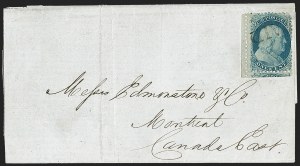 Messrs Edmonstone & Co.
Montreal
Canada East.